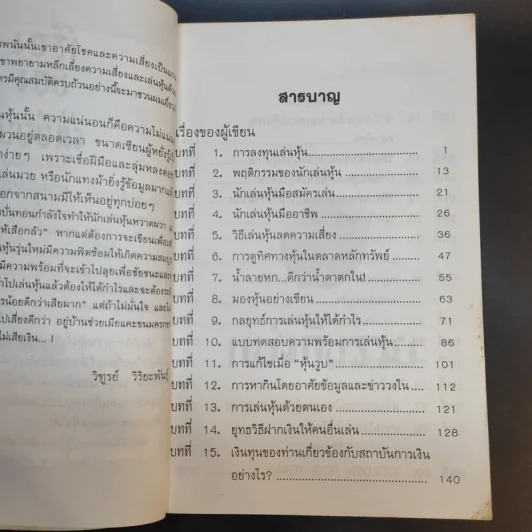 พนันนั้นเขาอาศัยโชคและความเสี่ยงเป็น
าพยายามหลีกเลี่ยงความเสี่ยงและเล่นหุ้นด้วย
ครมีคุณสมบัติครบถ้วนอย่างนี้จะมาชวนผม
หุ้นนั้น ความแน่นอนก็คือความไม่แน่น
ผวนอยู่ตลอดเวลา ขนาดเซียนผู้หยั่งรู้ยัง
ง่ายๆ เพราะเชื่อฝีมือและลุ่มหลงต่อ
เล่นมวย หรือนักแทงม้ายิ่งรู้ข้อมูลมาก
ออกจากสนามมีให้เห็นอยู่ทุกบ่อยๆ
บั่นทอนกำลังใจทำให้นักเล่นหุ้นหวาดผวา
ให้เสือกลัว" หากแต่ต้องการจะเขียนเพื่อ
หุ้นรุ่นใหม่มีความฟิตซ้อมให้เกิดความสม
มีความพร้อมที่จะเข้าไปลุยเพื่อชัยชนะและ
าไปเล่นหุ้นแล้วต้องให้ได้กำไรและจะต้อง
รน้อยดีกว่าเสียมาก" แต่ถ้าไม่มั่นใจ และ
ไปเสี่ยงดีกว่า อยู่บ้านช่วยเมียแคะขนมครก
ไม่เสียเงิน...!
วิฑูรย์ วิริยะพันธุ์
สารบาญ
เรื่องของผู้เขียน
บทที่ 1. การลงทุนเล่นหุ้น 1
บทที่ 2. พฤติกรรมของนักเล่นหุ้น 13
บทที่ 3. นักเล่นหุ้นมือสมัครเล่น 21
บทที่ 4. นักเล่นหุ้นมืออาชีพ 26
บทที่ 5. วิธีเล่นหุ้นลดความเสี่ยง 36
บทที่ 6. การดูทิศทางหุ้นในตลาดหลักทรัพย์ 47
บทที่ 7. น้ำลายหก...ดีกว่าน้ำตาตกใน! 55
บทที่ 8. มองหุ้นอย่างเซียน 63
บทที่ 9. กลยุทธ์การเล่นหุ้นให้ได้กำไร 71
บทที่ 10. แบบทดสอบความพร้อมการเล่นหุ้น 86
บทที่ 11. การแก้ไขเมื่อ "หุ้นวูบ" 101
บทที่ 12. การหากินโดยอาศัยข้อมูลและข่าววงใน 112
บทที่ 13. การเล่นหุ้นด้วยตนเอง 121
บทที่ 14. ยุทธวิธีฝากเงินให้คนอื่นเล่น 128
บทที่ 15. เงินทุนของท่านเกี่ยวข้องกับสถาบันการเงิน
อย่างไร? 140